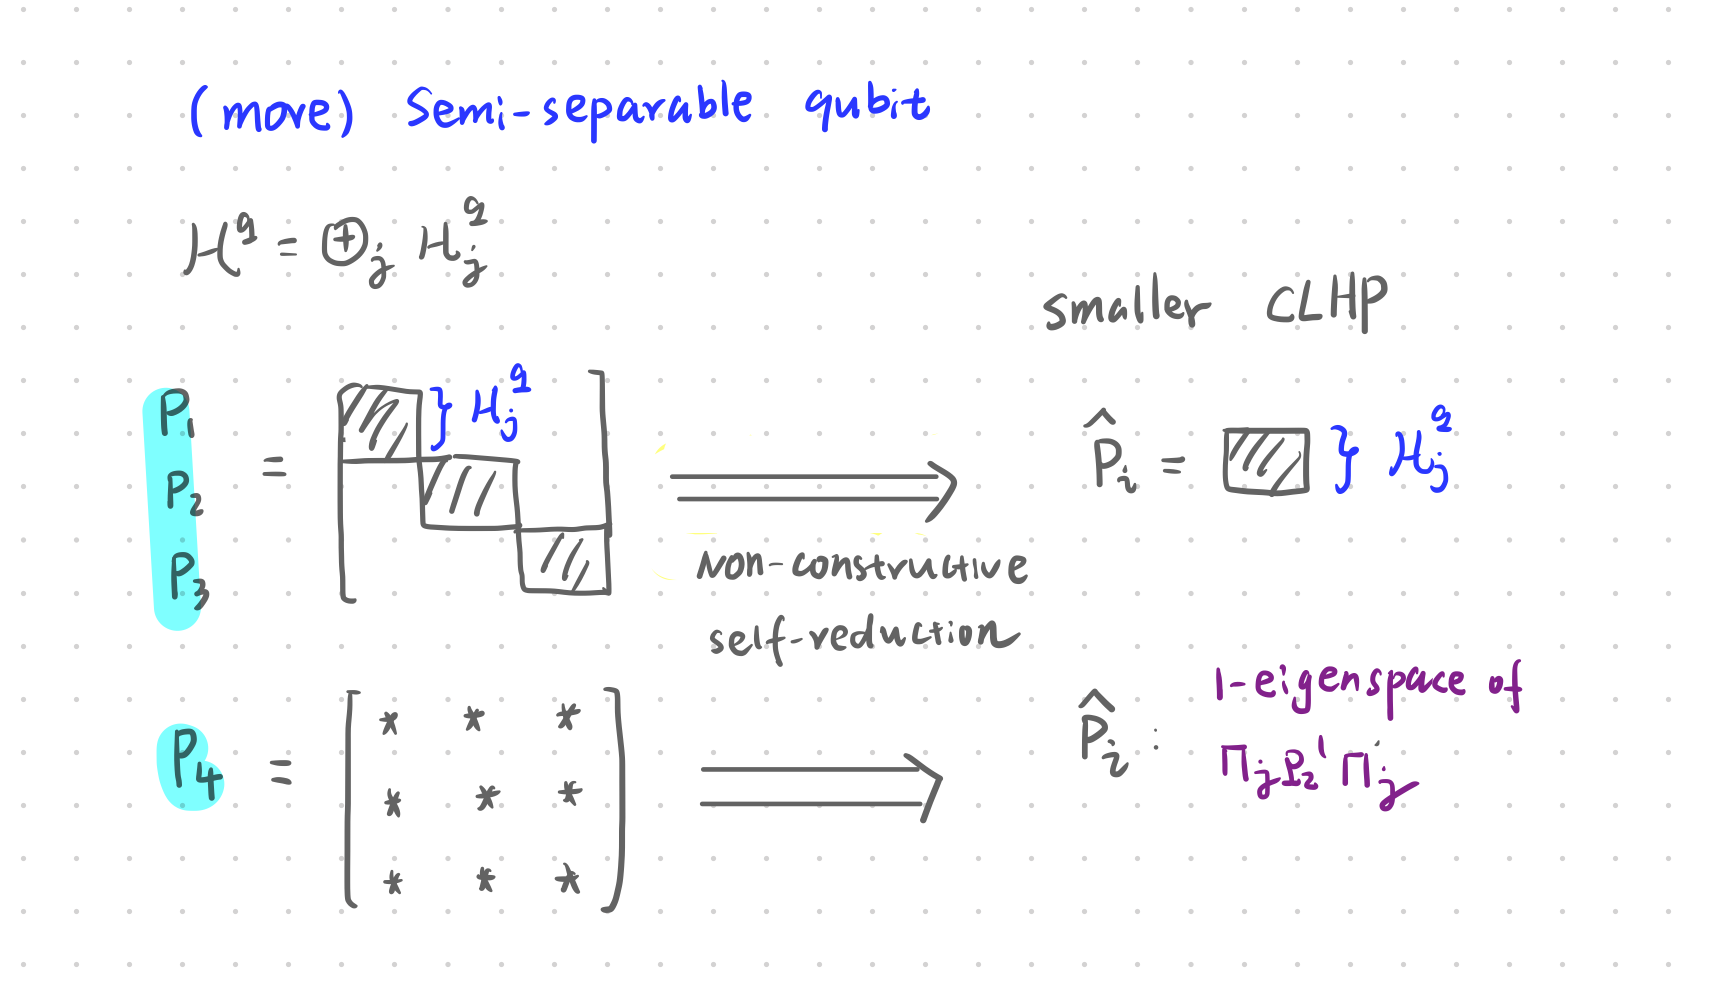 (more) Semi-separable qubit
H^q = ⊕_j H_j^q
smaller CLHP
P_1
P_2
P_3
= [ } H_j^q ]
⟹
Non-constructive
self-reduction
P̂_i = } H_j^q
P_4 = [ * * *
* * *
* * * ]
⟹
P̂_i :
1-eigenspace of
Π_j P_2' Π_j